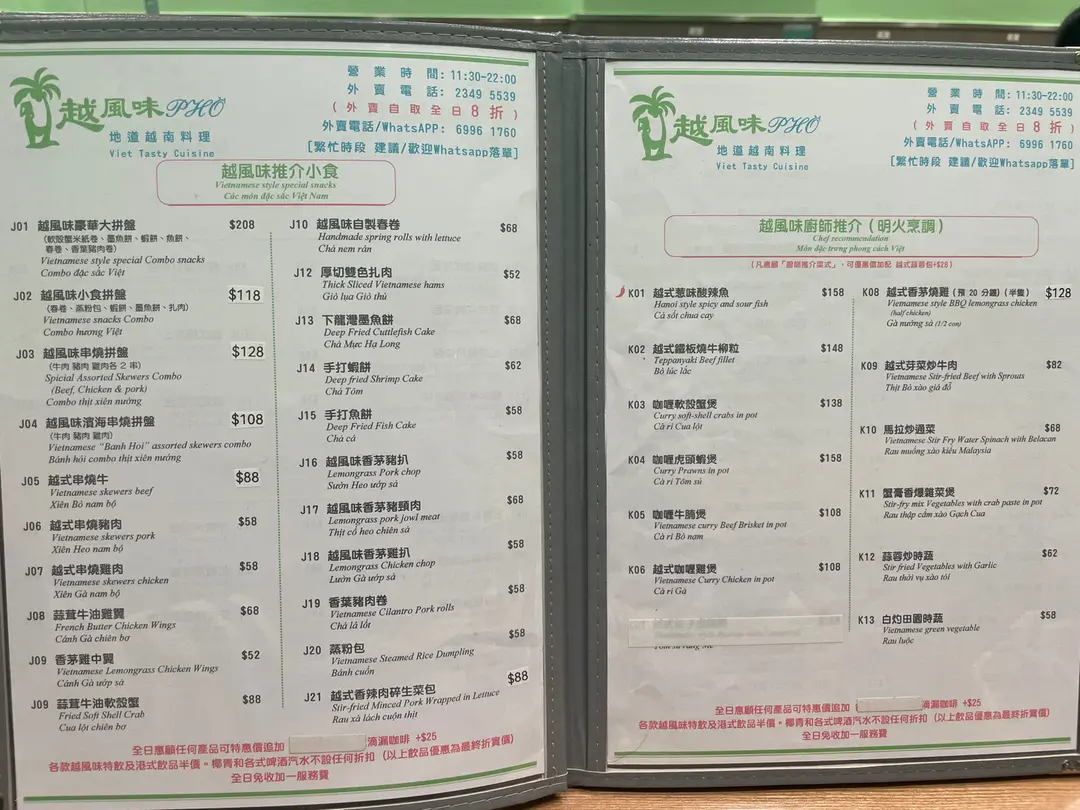 越風味 PHỞ
地道越南料理
Viet Tasty Cuisine
營業時間: 11:30-22:00
外賣電話: 2349 5539
(外賣自取全日8折)
外賣電話/WhatsAPP: 6996 1760
[繁忙時段 建議/歡迎Whatsapp落單]
越風味推介小食
Vietnamese style special snacks
Các món đặc sắc Việt Nam
J01 越風味豪華大拼盤 $208
(軟殼蟹米紙卷、墨魚餅、蝦餅、魚餅、
春卷、香葉豬肉卷)
Vietnamese style special Combo snacks
Combo đặc sắc Việt
J02 越風味小食拼盤 $118
(春卷、蒸粉包、蝦餅、墨魚餅、扎肉)
Vietnamese snacks Combo
Combo hương Việt
J03 越風味串燒拼盤 $128
(牛肉 豬肉 雞肉各 2 串)
Spicial Assorted Skewers Combo
(Beef, Chicken & pork)
Combo thịt xiên nướng
J04 越風味濱海串燒拼盤 $108
(牛肉 豬肉 雞肉)
Vietnamese "Banh Hoi" assorted skewers combo
Bánh hỏi combo thịt xiên nướng
J05 越式串燒牛 $88
Vietnamese skewers beef
Xiên Bò nam bộ
J06 越式串燒豬肉 $58
Vietnamese skewers pork
Xiên Heo nam bộ
J07 越式串燒雞肉 $58
Vietnamese skewers chicken
Xiên Gà nam bộ
J08 蒜茸牛油雞翼 $68
French Butter Chicken Wings
Cánh Gà chiên bơ
J09 香茅雞中翼 $52
Vietnamese Lemongrass Chicken Wings
Cánh Gà ướp sả
J09 蒜茸牛油軟殼蟹 $88
Fried Soft Shell Crab
Cua lột chiên bơ
J10 越風味自製春卷 $68
Handmade spring rolls with lettuce
Chả nem rán
J12 厚切雙色扎肉 $52
Thick Sliced Vietnamese hams
Giò lụa Giò thủ
J13 下龍灣墨魚餅 $68
Deep Fried Cuttlefish Cake
Chả Mực Hạ Long
J14 手打蝦餅 $62
Deep fried Shrimp Cake
Chả Tôm
J15 手打魚餅 $58
Deep Fried Fish Cake
Chả cá
J16 越風味香茅豬扒 $58
Lemongrass Pork chop
Sườn Heo ướp sả
J17 越風味香茅豬頸肉 $68
Lemongrass pork jowl meat
Thịt cổ heo chiên sả
J18 越風味香茅雞扒 $58
Lemongrass Chicken chop
Lườn Gà ướp sả
J19 香葉豬肉卷 $58
Vietnamese Cilantro Pork rolls
Chả lá lốt
J20 蒸粉包 $58
Vietnamese Steamed Rice Dumpling
Bánh cuốn
J21 越式香辣肉碎生菜包 $88
Stir-fried Minced Pork Wrapped in Lettuce
Rau xà lách cuộn thịt
全日惠顧任何產品可特惠價追加 滴漏咖啡 +$25
各款越風味特飲及港式飲品半價。椰青和各式啤酒汽水不設任何折扣 (以上飲品優惠為最終折實價)
全日免收加一服務費
越風味 PHỞ
地道越南料理
Viet Tasty Cuisine
營業時間: 11:30-22:00
外賣電話: 2349 5539
(外賣自取全日8折)
外賣電話/WhatsAPP: 6996 1760
[繁忙時段 建議/歡迎Whatsapp落單]
越風味廚師推介 (明火烹調)
Chef recommendation
Món đặc trưng phong cách Việt
(凡惠顧「廚師推介菜式」, 可優惠價加配 越式蒜蓉包+$28)
K01 越式葱味酸辣魚 $158
Hanoi style spicy and sour fish
Cá sốt chua cay
K02 越式鐵板燒牛柳粒 $148
Teppanyaki Beef fillet
Bò lúc lắc
K03 咖喱軟殼蟹煲 $138
Curry soft-shell crabs in pot
Cà ri Cua lột
K04 咖喱虎頭蝦煲 $158
Curry Prawns in pot
Cà ri Tôm sú
K05 咖喱牛腩煲 $108
Vietnamese curry Beef Brisket in pot
Cà ri Bò nạm
K06 越式咖喱雞煲 $108
Vietnamese Curry Chicken in pot
Cà ri Gà
K08 越式香茅燒雞 (預 20 分鐘) (半隻) $128
Vietnamese style BBQ lemongrass chicken
(half chicken)
Gà nướng sả (1/2 con)
K09 越式芽菜炒牛肉 $82
Vietnamese Stir-fried Beef with Sprouts
Thịt Bò xào giá đỗ
K10 馬拉炒通菜 $68
Vietnamese Stir Fry Water Spinach with Belacan
Rau muống xào kiểu Malaysia
K11 蟹膏香爆雜菜煲 $72
Stir-fry mix Vegetables with crab paste in pot
Rau thập cẩm xào Gạch Cua
K12 蒜蓉炒時蔬 $62
Stir fried Vegetables with Garlic
Rau thời vụ xào tỏi
K13 白灼田園時蔬 $58
Vietnamese green vegetable
Rau luộc
全日惠顧任何產品可特惠價追加 滴漏咖啡 +$25
各款越風味特飲及港式飲品半價。椰青和各式啤酒汽水不設任何折扣 (以上飲品優惠為最終折實價)
全日免收加一服務費